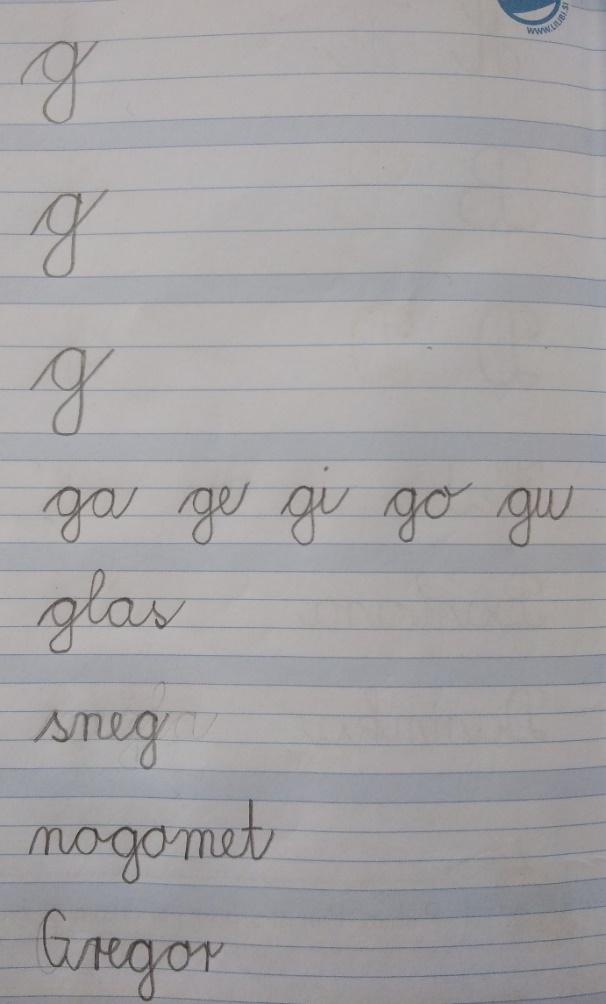 WWW.LILIBI.SI
g
g
g
ga ge gi go gu
glas
sneg
nogomet
Gregor